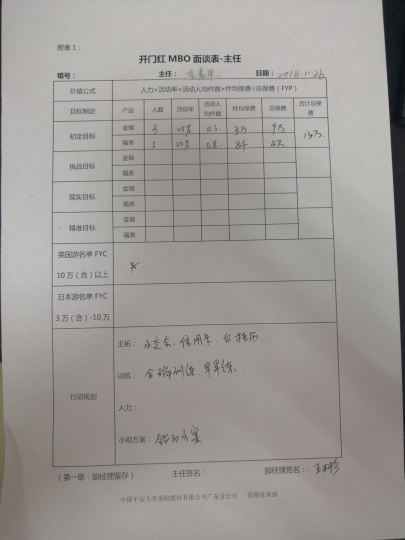 附表1：
开门红 MBO 面谈表-主任
组号： 主任： 日期：2018.11.26
价值公式 人力×活动率×活动人均件数×件均保费=总保费（FYP）
目标制定 产品 人数 活动率 活动人均件数 件均保费 总保费 合计总保费
初定目标 金瑞 3 25% 0.3 3万 9万 13万
福类 5 50% 0.8 84 4万
挑战目标 金瑞
福类
现实目标 金瑞
福类
精准目标 金瑞
福类
英国游名单 FYC
10万（含）以上
日本游名单 FYC
3万（含）-10万
行动规划
主拓：水交会、信用卡、台挂历
训练：金瑞训练、早早练、
人力：
小组方案：
（第一联：部经理留存） 主任签名： 部经理签名：
中国平安人寿保险股份有限公司广东分公司 营销管理部